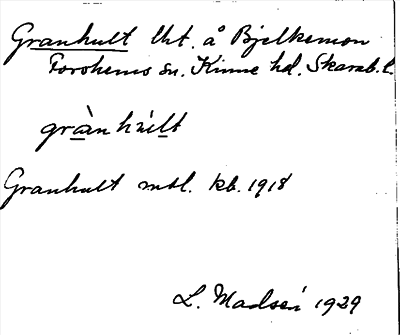 Granhult lht. å Bjelkemon
Forshems sn. Kinne hd. Skarab. l.
grànhult
Granhult mtl. kb. 1918
L. Madsén 1929